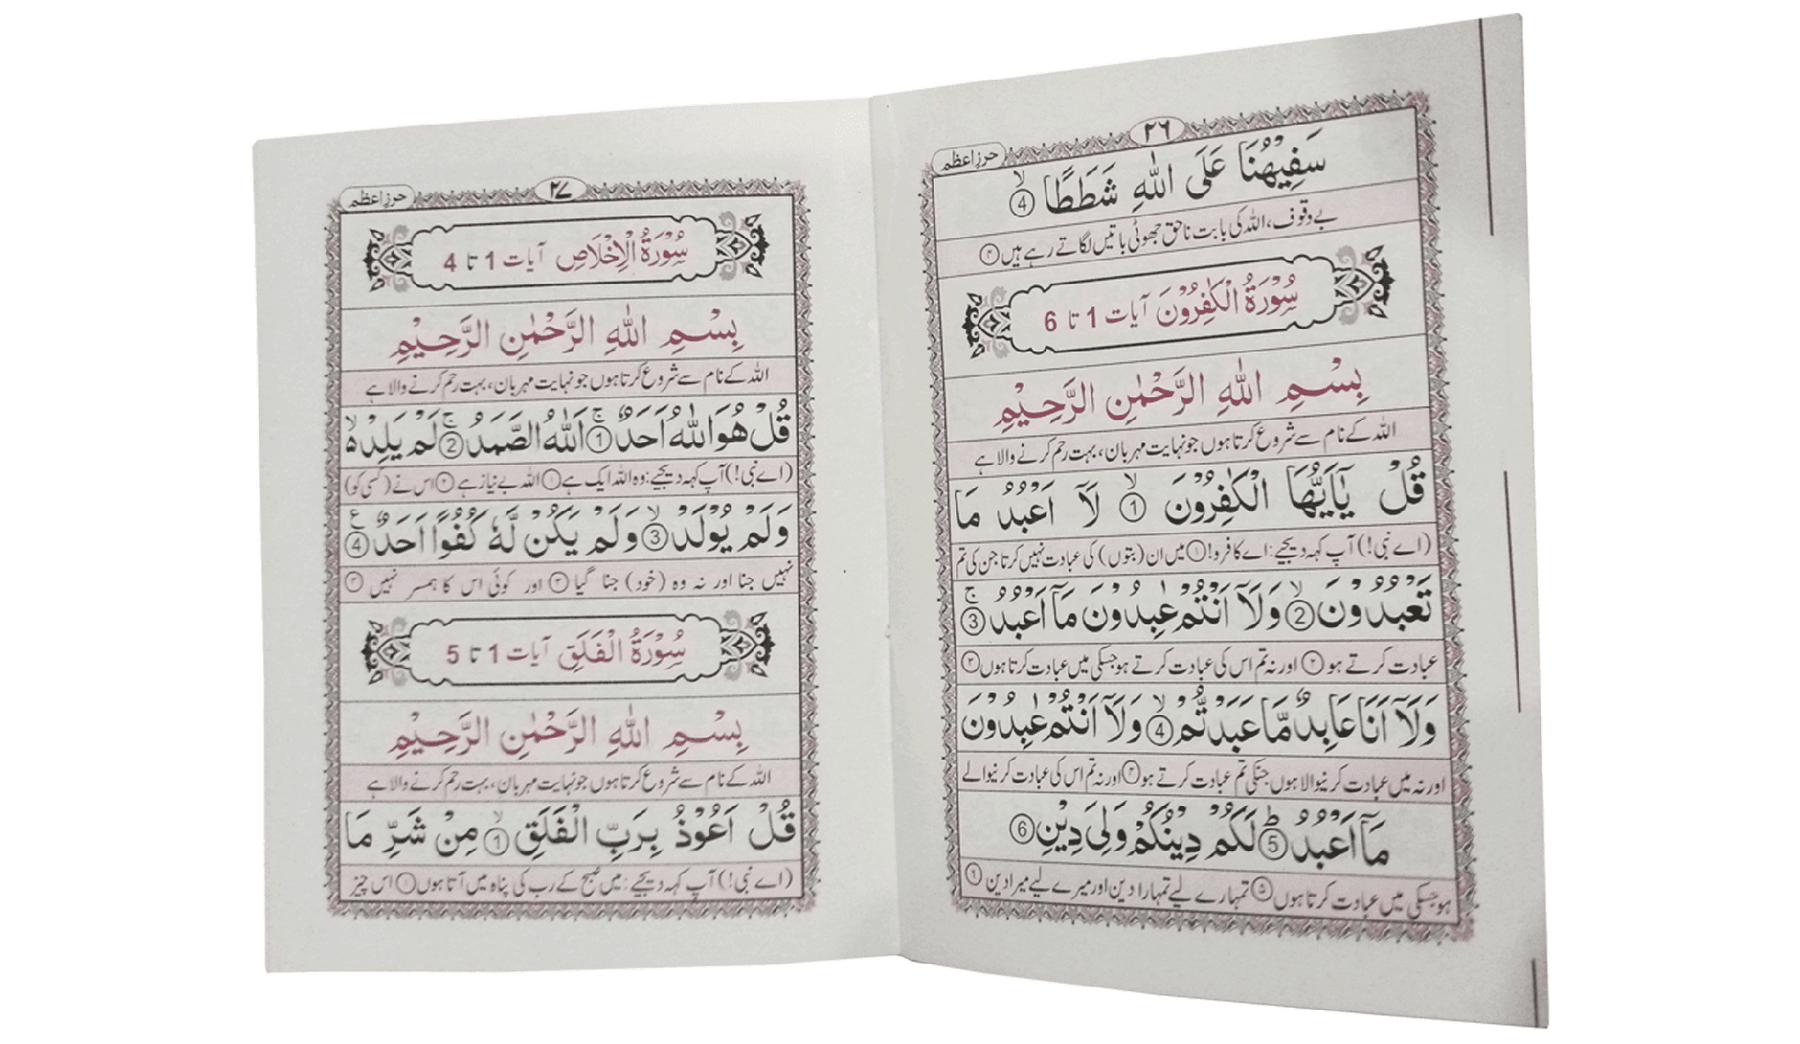 حرزِ اعظم
٢٦
سَفِيْهُنَا عَلَى اللّٰهِ شَطَطًا ۙ④
بے وقوف، اللہ کی بابت ناحق جھوٹی باتیں لگاتے رہے ہیں ④
سُوْرَةُ الْكٰفِرُوْنَ آیات 1 تا 6
بِسْمِ اللّٰهِ الرَّحْمٰنِ الرَّحِيْمِ
اللہ کے نام سے شروع کرتا ہوں جو نہایت مہربان، بہت رحم کرنے والا ہے
قُلْ يٰٓاَيُّهَا الْكٰفِرُوْنَ ۙ① لَآ اَعْبُدُ مَا
(اے نبی!) آپ کہہ دیجیے: اے کافرو! ① میں ان (بتوں) کی عبادت نہیں کرتا جن کی تم
تَعْبُدُوْنَ ۙ② وَلَآ اَنْتُمْ عٰبِدُوْنَ مَآ اَعْبُدُ ۚ③
عبادت کرتے ہو ② اور نہ تم اس کی عبادت کرتے ہو جسکی میں عبادت کرتا ہوں ③
وَلَآ اَنَا عَابِدٌ مَّا عَبَدْتُّمْ ۙ④ وَلَآ اَنْتُمْ عٰبِدُوْنَ
اور نہ میں عبادت کرنیوالا ہوں جنکی تم عبادت کرتے ہو ④ اور نہ تم اس کی عبادت کرنیوالے
مَآ اَعْبُدُ ؕ⑤ لَكُمْ دِيْنُكُمْ وَلِيَ دِيْنِ ⑥
ہو جسکی میں عبادت کرتا ہوں ⑤ تمہارے لیے تمہارا دین اور میرے لیے میرا دین ⑥
حرزِ اعظم
٢٧
سُوْرَةُ الْاِخْلَاصِ آیات 1 تا 4
بِسْمِ اللّٰهِ الرَّحْمٰنِ الرَّحِيْمِ
اللہ کے نام سے شروع کرتا ہوں جو نہایت مہربان، بہت رحم کرنے والا ہے
قُلْ هُوَ اللّٰهُ اَحَدٌ ۚ① اَللّٰهُ الصَّمَدُ ۚ② لَمْ يَلِدْ ۙ
(اے نبی!) آپ کہہ دیجیے: وہ اللہ ایک ہے ① اللہ بے نیاز ہے ② اس نے (کسی کو)
وَلَمْ يُوْلَدْ ۙ③ وَلَمْ يَكُنْ لَّهٗ كُفُوًا اَحَدٌ ④ ع
نہیں جنا اور نہ وہ (خود) جنا گیا ③ اور کوئی اس کا ہمسر نہیں ④
سُوْرَةُ الْفَلَقِ آیات 1 تا 5
بِسْمِ اللّٰهِ الرَّحْمٰنِ الرَّحِيْمِ
اللہ کے نام سے شروع کرتا ہوں جو نہایت مہربان، بہت رحم کرنے والا ہے
قُلْ اَعُوْذُ بِرَبِّ الْفَلَقِ ۙ① مِنْ شَرِّ مَا
(اے نبی!) آپ کہہ دیجیے: میں صبح کے رب کی پناہ میں آتا ہوں ① اس چیز